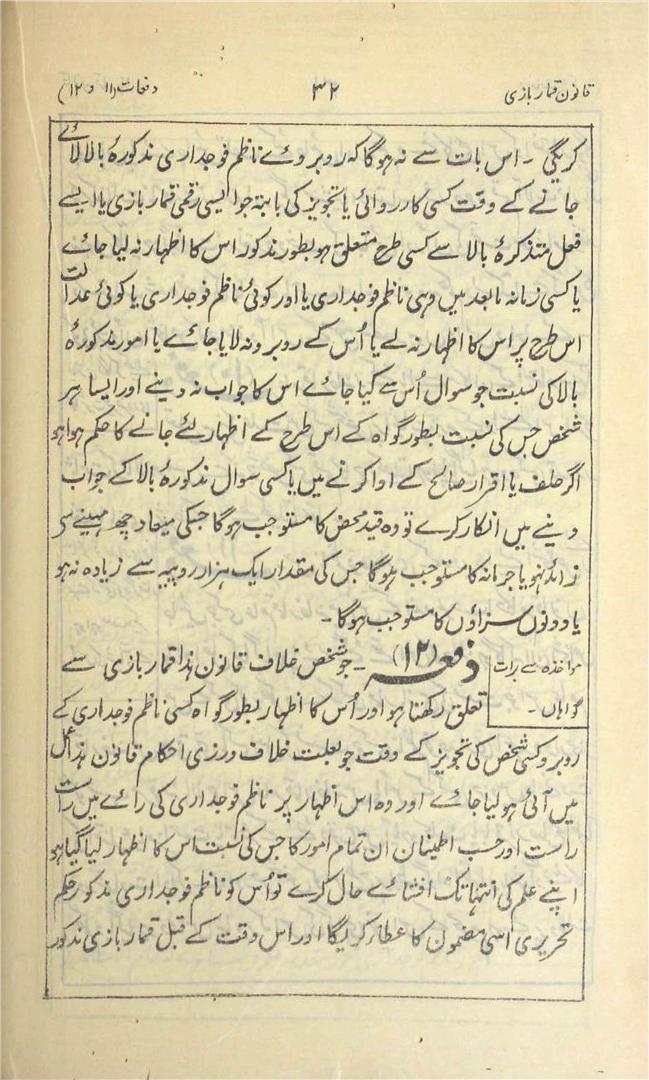 قانون قمار بازی ۳۲ دفعات (۱۱ و ۱۲)
کریگی ۔ اس بات سے نہ ہوگا کہ روبروے ناظم فوجداری مذکورۂ بالا لائے
جانے کے وقت کسی کارروائی یا تجویز کی بابتہ جو ایسی رقمی قمار بازی یا ایسے
فعل متذکرۂ بالا سے کسی طرح متعلق ہو بطور مذکور اس کا اظہار نہ لیا جائے
یا کسی زمانہ مابعد میں وہی ناظم فوجداری یا اور کوئی ناظم فوجداری یا کوئی عدالت
اس طرح پر اس کا اظہار نہ لے یا اُس کے روبرو نہ لایا جاے یا امور مذکورۂ
بالا کی نسبت جو سوال اُس سے کیا جاے اس کا جواب نہ دینے اور ایسا ہر
شخص جس کی نسبت بطور گواہ کے اس طرح کے اظہار لئے جانے کا حکم ہوا ہو
اگر حلف یا اقرار صالح کے ادا کرنے میں یا کسی سوال مذکورۂ بالا کے جواب
دینے میں انکار کرے تو وہ قید محض کا مستوجب ہوگا جسکی میعاد چھ مہینے سے
زائد نہو یا جرمانہ کا مستوجب ہوگا جس کی مقدار ایک ہزار روپیہ سے زیادہ نہ ہو
یا دونوں سزاؤں کا مستوجب ہوگا ۔
مواخذہ سے برات
گواہان ۔
دفعہ (۱۲) ۔ جو شخص خلاف قانون ہذا قمار بازی سے
تعلق رکھتا ہو اور اُس کا اظہار بطور گواہ کسی ناظم فوجداری کے
روبرو کسی شخص کی تجویز کے وقت جو بعلت خلاف ورزی احکام قانون ہذا عمل
میں آئی ہو لیا جاے اور وہ اس اظہار پر ناظم فوجداری کی راے میں راست
راست اور حسب اطینان ان تمام امور کا جس کی نسبت اس کا اظہار لیا گیا ہو
اپنے علم کی انتہا تک افشاے حال کرے تو اُس کو ناظم فوجداری مذکور حکم
تحریری اسی مضمون کا عطا کریگا اور اس وقت کے قبل قمار بازی مذکور